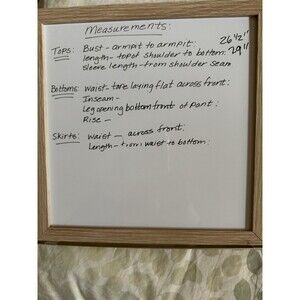 Measurements:
Tops: Bust - armpit to armpit: 26 1/2"
length - top of shoulder to bottom: 29"
Sleeve length - from shoulder seam
Bottoms: Waist - tape laying flat across front:
Inseam -
Leg opening bottom front of pant:
Rise -
Skirts: Waist - across front:
Length - from waist to bottom: